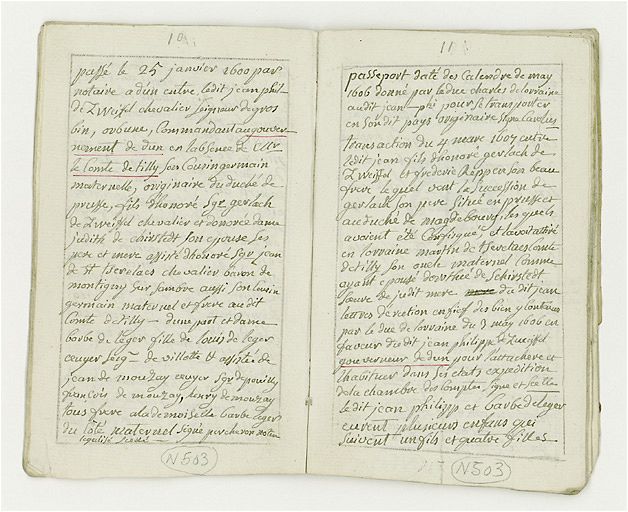 10
passé le 25 janvier 1600 par
notaire a dun entre ledit jean phil
de Zweiffel chevalier seigneur de gros
bin, orbune, Commandant au gouver
nement de dun en labsence de
le Comte de tilly son Cousin germain
maternelle, originaire du duché de
prusse, fils dhonoré Sgr gerlach
de Zweiffel chevalier et donorée dame
judith de chirstedt son epouse, ses
pere et mere assisté dhonoré Sgr jean
de St tserclaes chevalier baron de
montigny sur sambre aussi son cousin
germain maternel et frere audit
Comte de tilly — dune part et dame
barbe de leger fille de louis de leger
ecuyer seig— de villotte assistée de
jean de mouzay ecuyer Sgr de pouilly
françois de mouzay, henry de mouzay
tous frere a la demoiselle barbe leger
du coté maternel signé percheron notaire
legalisé scellé
N503
11
passeport daté des Calendre de may
1606 donné par le duc charles de lorraine
audit jean — phi pour se transporter
en son dit pays originaire
transaction du 4 mars 1607 entre
ledit jean fils dhonoré gerlach de
Zweiffel et frederic Repper son beau
frere lequel vent la succession de
gerlach son pere situé en prusse et
au duché de magdebourg, les quels
avoient été Confisqué et
en lorraine martin de tserclaes comte
de tilly son oncle maternel comme
ayant epousé dorothée de schirstedt
soeur de judit mere du dit jean
lettres de retion en fief des biens contenus
par le duc de lorraine du 3 may 1606 en
faveur du dit jean philippe de Zweiffel
gouverneur de dun pour lattacher et
lhabituer dans ses etats expedition
de la chambre des comptes, signe et scelle
ledit jean philipp et barbe de leger
eurent plusieurs enfans qui
suivent un fils et quatre filles
N503